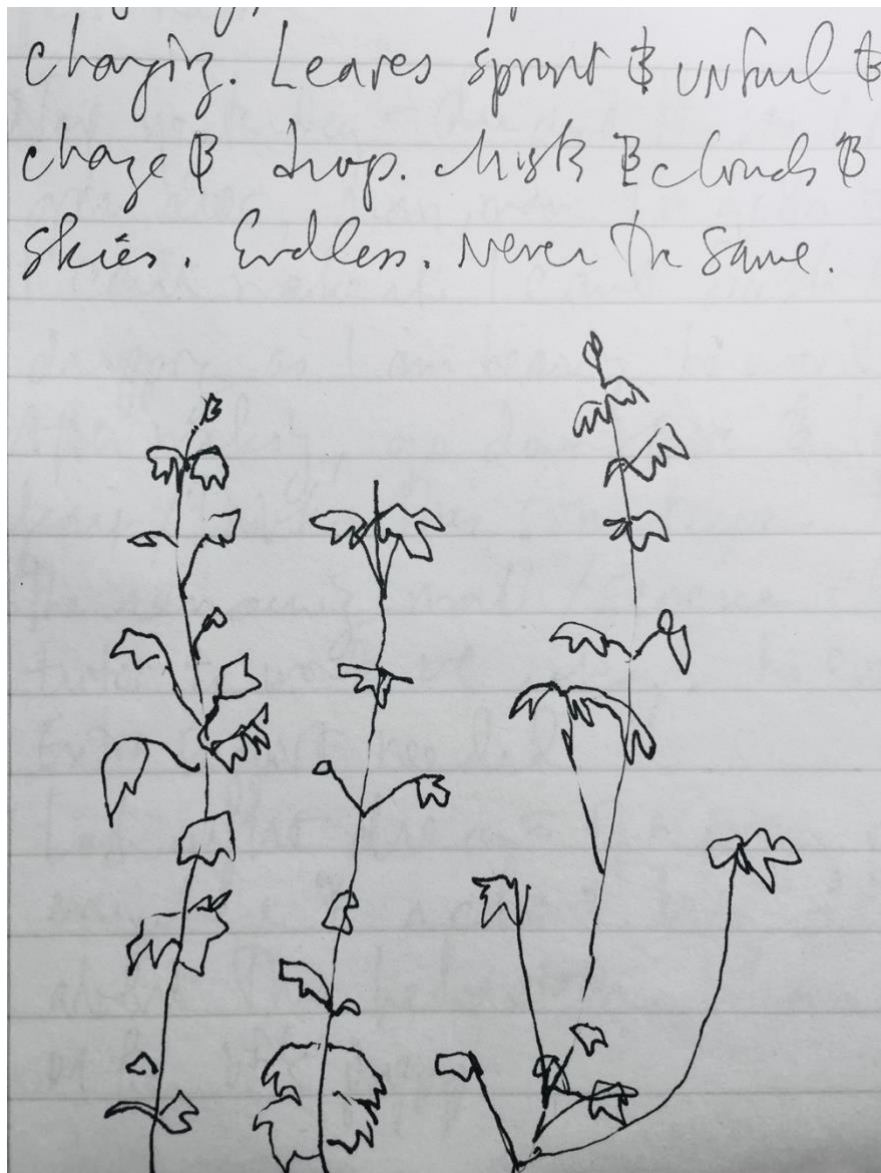 changing. Leaves sprout & unfurl &
change & drop. Mists & clouds &
skies. Endless. Never the same.